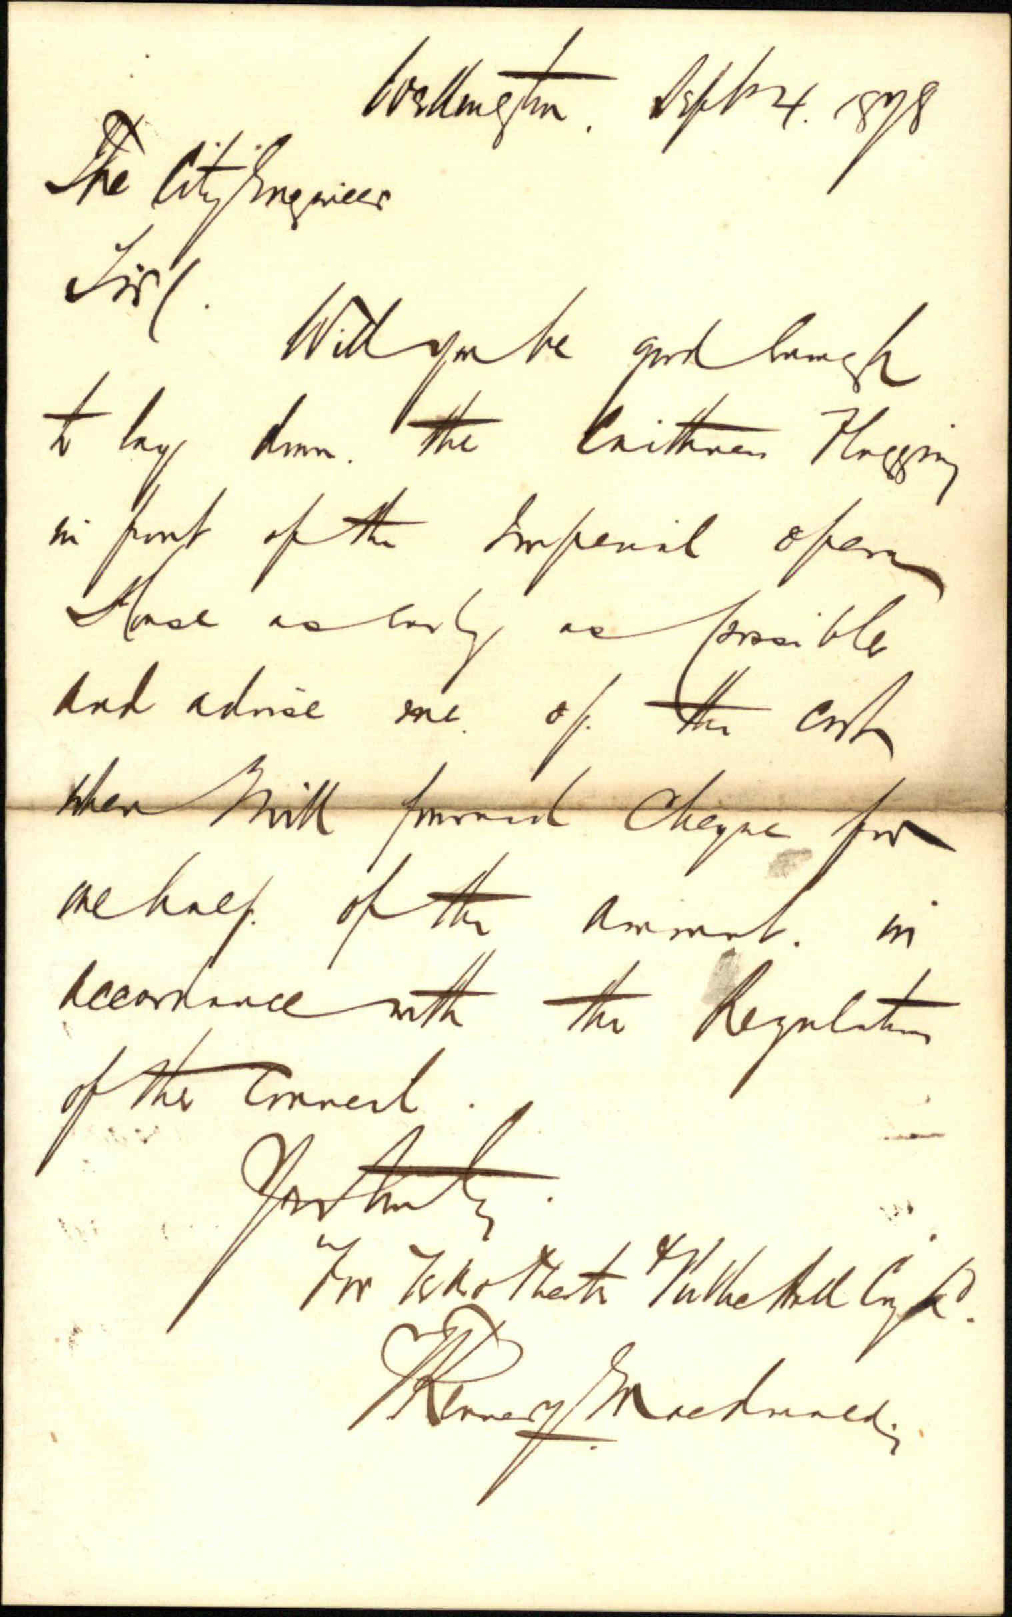 Wellington. Sept 4. 1878
The City Engineer
Sir/.
Will you be good enough
to lay down. the Caithness Flagging
in front of the Imperial opera
House as early as possible
and advise me. of. the cost
when I will forward Cheque for
one half. of the amount. in
accordance with the Regulations
of the Council.
Yours truly.
For Theatre & Public Hall Coy Ld.
T Kennedy Macdonald